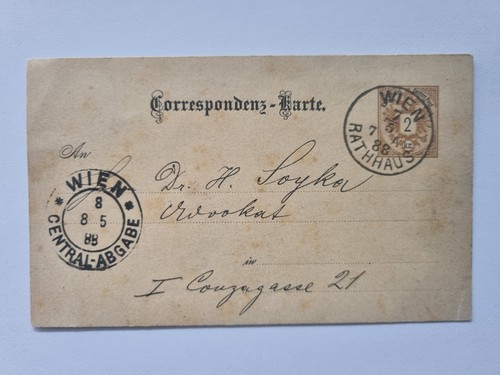 Correspondenz-Karte.
WIEN
7
5
7 88
RATHHAUS
2
An
Dr. H. Soyka
Advokat
in
I Conzagasse 21
* WIEN *
8
8 5
88
CENTRAL-ABGABE